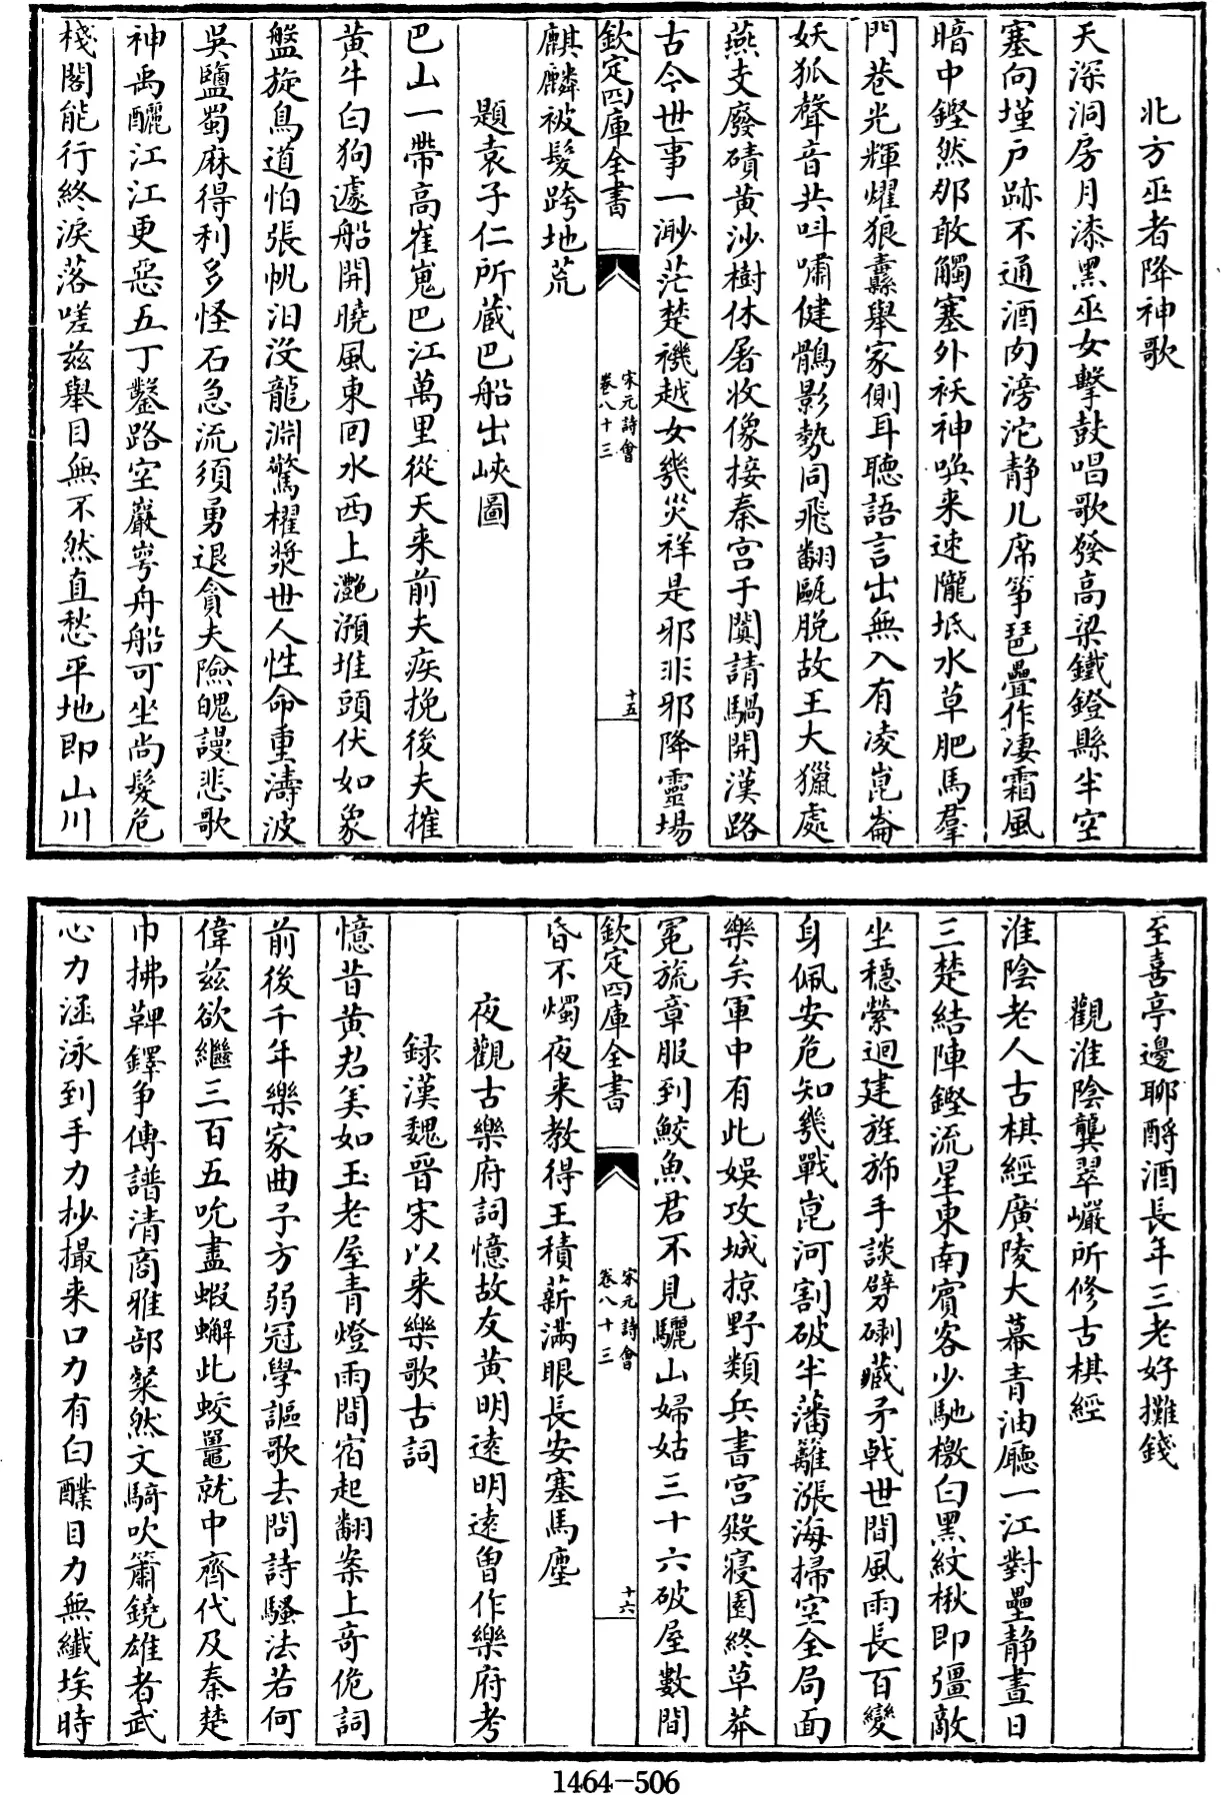 北方巫者降神歌
天深洞房月漆黑巫女擊鼓唱歌發高梁鐵鐙縣半空
塞向墐戶跡不通酒肉滂沱静几席筝琶疊作凄霜風
暗中鏗然那敢觸塞外袄神喚来速隴坻水草肥馬羣
門巷光輝耀狼纛舉家側耳聴語言出無入有凌崑崙
妖狐聲音共呌嘯健鶻影勢同飛翻甌脱故王大獵處
燕支廢磧黄沙樹休屠收像接秦宫于闐請騧開漢路
古今世事一渺茫楚禨越女幾災祥是邪非邪降靈場
欽定四庫全書
宋元詩會
卷八十三
十五
麒麟被髮跨地荒
題袁子仁所蔵巴船出峽圖
巴山一帶高崔嵬巴江萬里從天来前夫疾挽後夫摧
黄牛白狗遽船開曉風東回水西上灔澦堆頭伏如象
盤旋鳥道怕張帆汨沒龍淵驚櫂漿世人性命重濤波
吳鹽蜀麻得利多怪石急流須勇退貪夫險魄謾悲歌
神禹釃江江更惡五丁鑿路空巖崿舟船可坐尚髮危
棧閣能行終淚落嗟兹舉目無不然直愁平地即山川
至喜亭邊聊酹酒長年三老好攤錢
觀淮陰龔翠巖所修古棋經
淮陰老人古棋經廣陵大幕青油廳一江對壘静晝日
三楚結陣鏗流星東南賓客少馳檄白黑紋楸即彊敵
坐穩縈迴建旌斾手談劈㓨藏矛戟世間風雨長百變
身佩安危知幾戰崑河割破半藩籬漲海掃空全局面
樂矣軍中有此娱攻城掠野類兵書宫殿寝園終草莽
冕旒章服到鮫魚君不見驪山婦姑三十六破屋數間
欽定四庫全書
宋元詩會
卷八十三
十六
昏不燭夜来教得王積薪滿眼長安塞馬塵
夜觀古樂府詞憶故友黄明遠明遠曾作樂府考
録漢魏晉宋以来樂歌古詞
憶昔黄君美如玉老屋青燈雨間宿起翻案上奇佹詞
前後千年樂家曲予方弱冠學謳歌去問詩騷法若何
偉兹欲繼三百五吮盡蝦蠏此蛟鼉就中齊代及秦楚
巾拂鞞鐸争傳譜清商雅部粲然文騎吹簫鐃雄者武
心力涵泳到手力抄撮来口力有白醭目力無纎埃時
1464-506